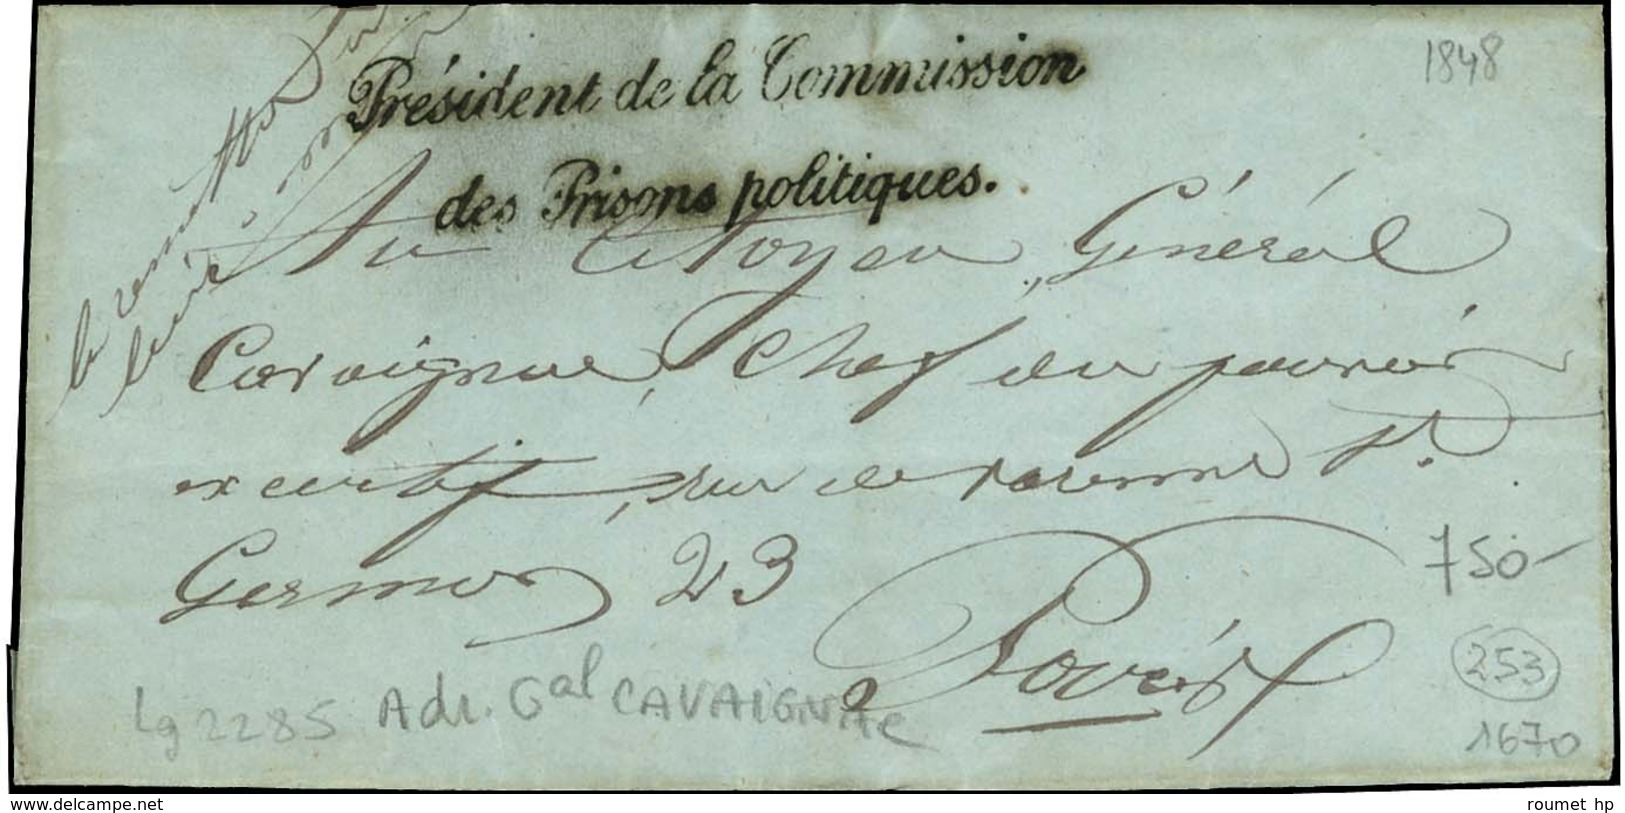 1848
Président de la Commission
des Prisons politiques.
Au Citoyen Général
Cavaignac, Chef du pouvoir
executif, rue de varenne St.
Germain 23
Paris
750-
253
1670
Lg 2285 Adr. Gal CAVAIGNAC
www.delcampe.net
roumet hp